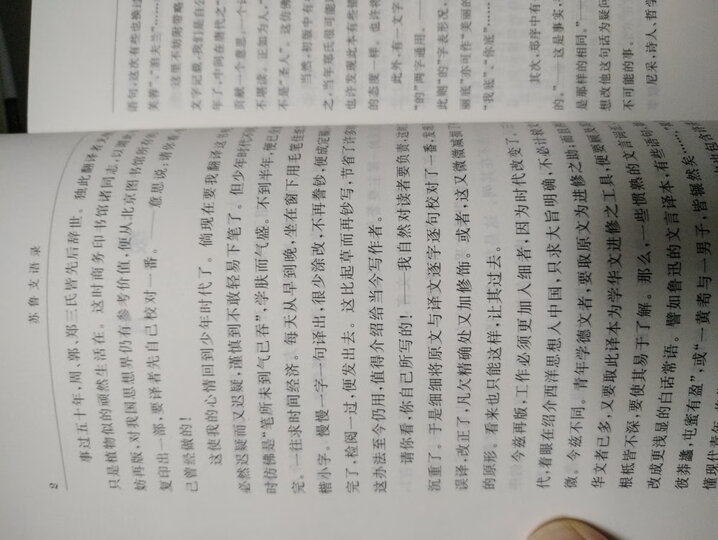 苏鲁支语录
2
事过五十年,周、郭、郑三氏皆先后辞世。独此翻译者
只是植物似的顽然生活在。这时商务印书馆诸同志,以
妨再版,对我国思想界仍有参考价值,便从北京图书馆所
复印出一部,要译者先自己校对一番。——意思说:请你看
己曾经做的!
这使我的心情回到少年时代了。倘现在要我翻译这
必然迟疑而又迟疑,谨慎到不敢轻易下笔了。但少年时代不
时仿佛是“笔所未到气已吞”,学肤而气盛。不到半年,便已
完。一往求时间经济。每天从早到晚,坐在窗下用毛笔
楷小字。慢慢一字一句译出,很少涂改,不再誊钞,便成定
完了,检阅一过,便发出去。这比起草而再钞写,节省了许
这办法至今仍用,值得介绍给当今写作者。
请你看,你自己所写的!——我自然对读者要负责
沉重了。于是细细将原文与译文逐字逐句校对了一番,发
误译,改正了,凡欠精确处又加修饰。或者,这又微微减损
的原形。看来也只能这样,让其过去。
今兹再版,工作必须更加入细者,因为时代改变了。
代,着眼在绍介西洋思想入中国,只求大旨明确,不必计较
微。今兹不同。青年学德文者,要取原文为进修之助;
华文者已多,又要取此译本为学华文进修之工具,便要
根柢皆不深,要使其易于了解。那么,一些惯熟的文言词
改成更浅显的白话常语。譬如鲁迅的文言译本,有些语句
彼莽蠡,屯蜜有盈”,或“一黄耇与一男子,皆辗然矣
懂现代青年
语句,这次有些也换过
芙蓉”、“泊夫兰”……
这里不妨附带略
文字记载,我们是自公
年了,中间在唐代之“
贡献一个意思。一个
不堪读。正如为人,“
不是“圣人”。这仿佛
当然,初版中有
之,当年郑氏很可能
也许发现此中有些错
的态度一样。也许将
此外,有一文字
“的”两字通用。——
此则“的”字表形况,
丽底”亦可作“美丽的
“我底”、“你底”……
其次,郑序中有
的。”——这是事实,
是那样的相同。”——
想改他这句话为疑问
不可能的事。
尼采,诗人,哲学